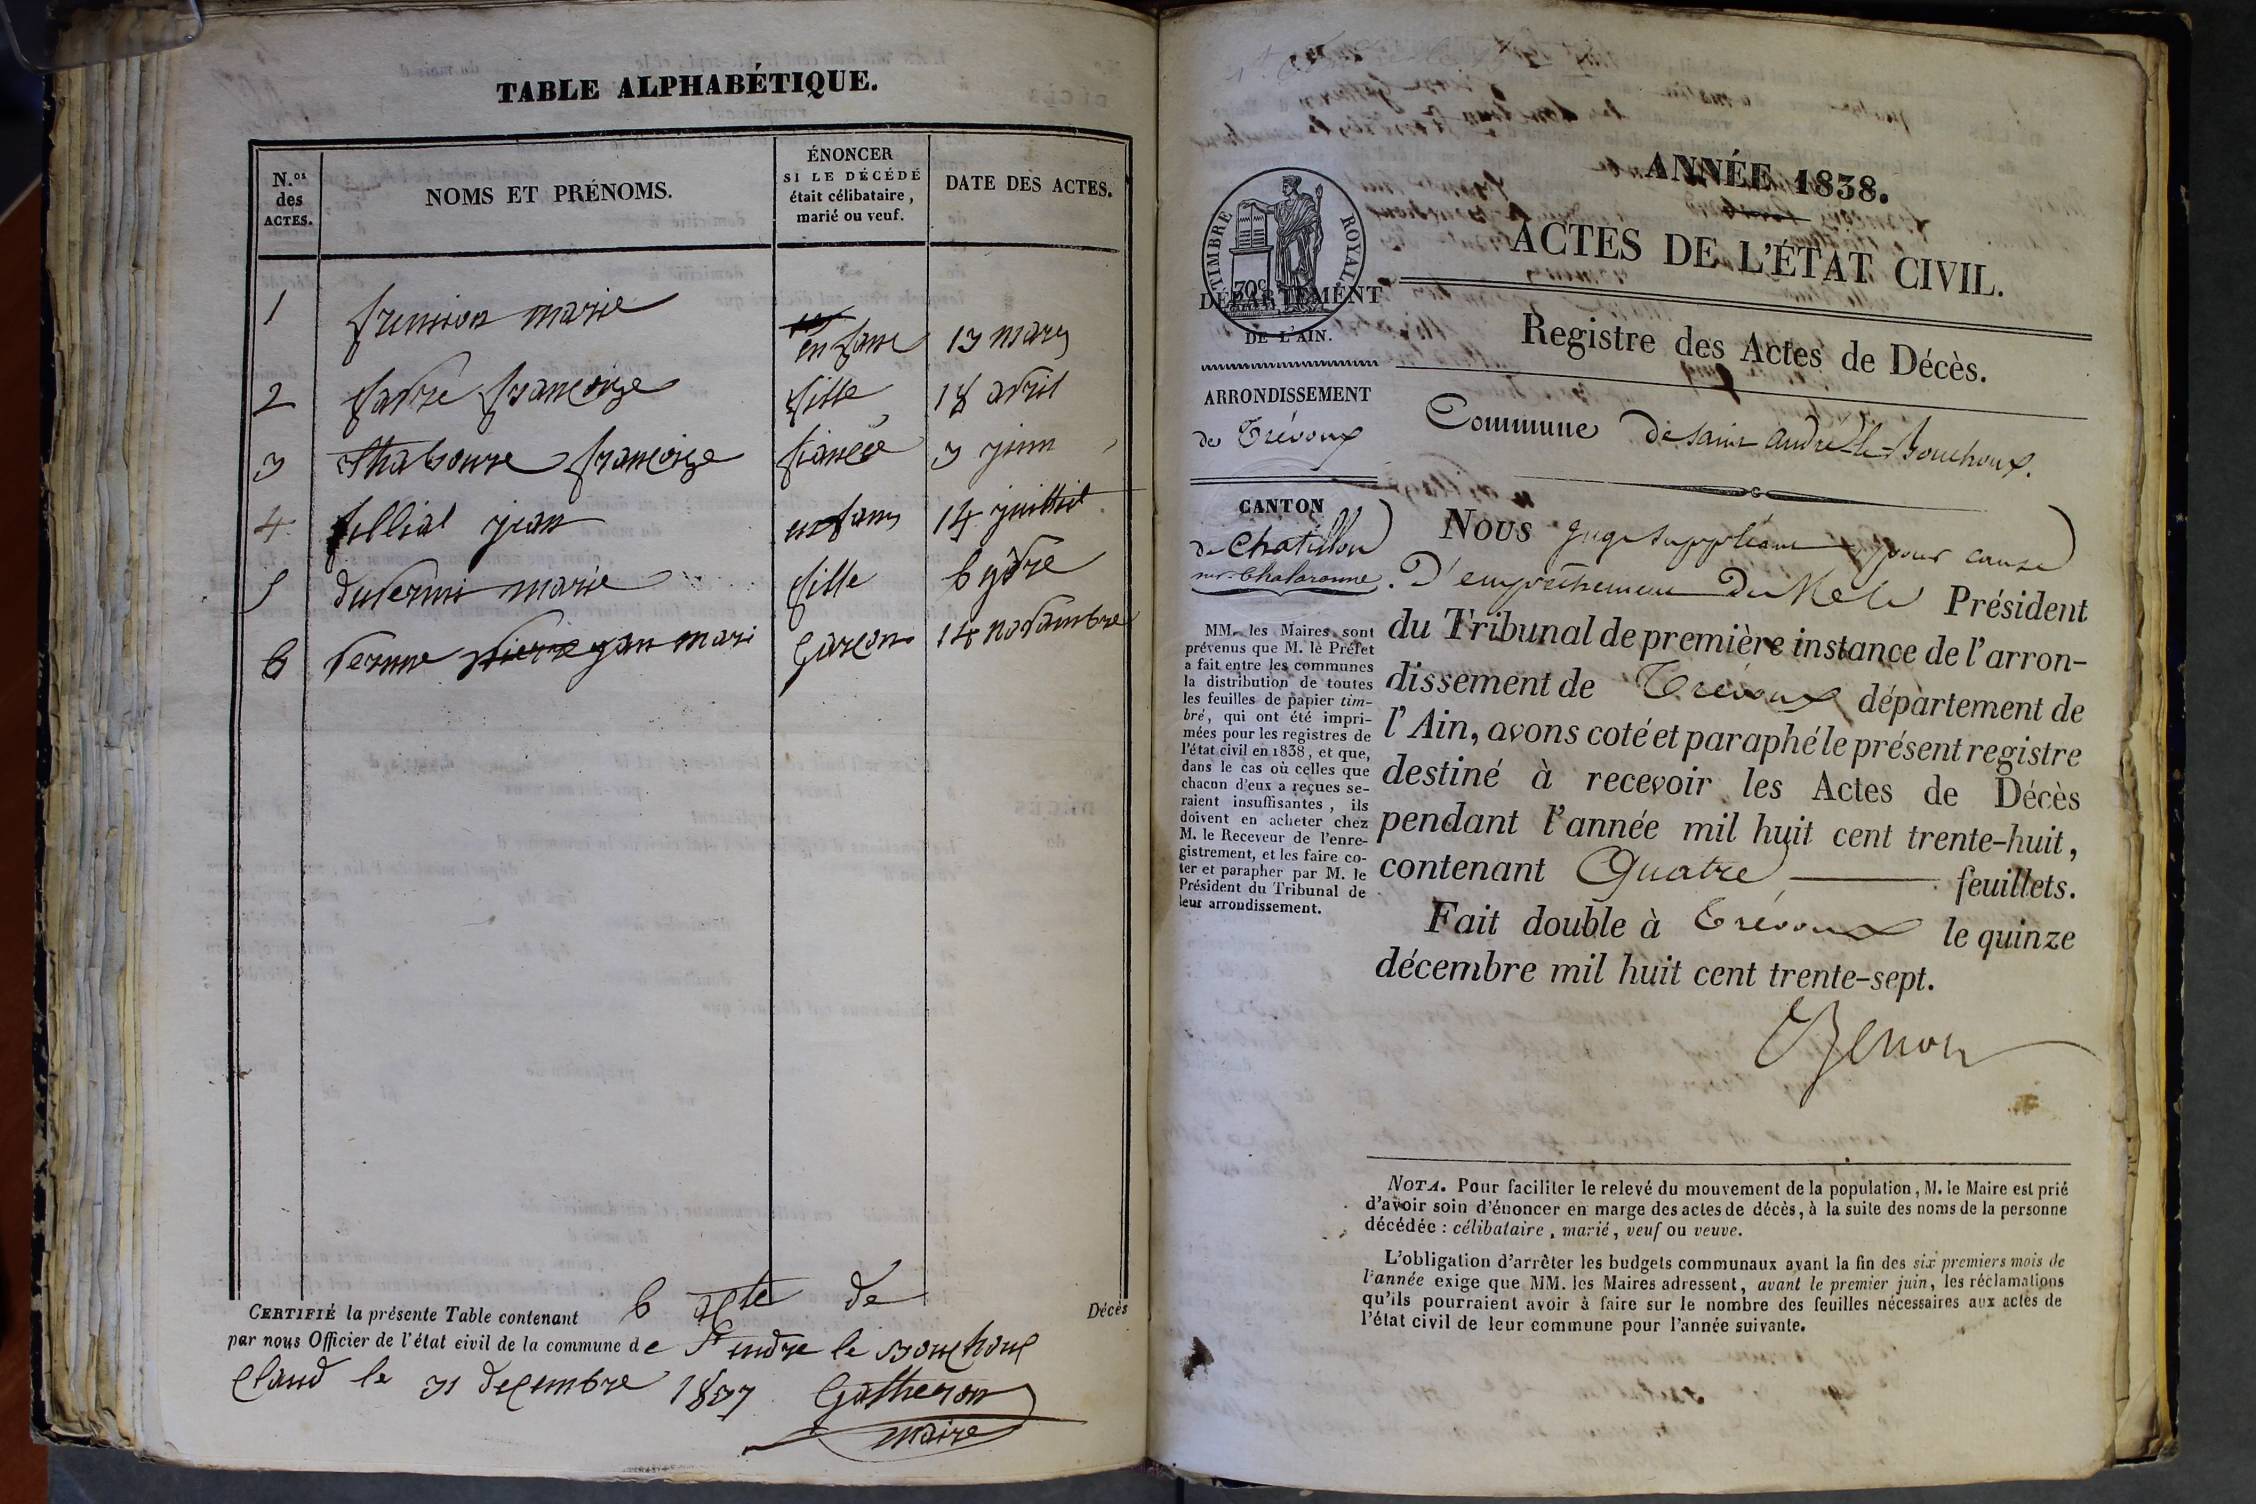 TABLE ALPHABÉTIQUE.
N.os des ACTES.
NOMS ET PRÉNOMS.
ÉNONCER
SI LE DÉCÉDÉ
était célibataire,
marié ou veuf.
DATE DES ACTES.
1 marie enfant 13 mars
2 favre françoise fille 18 avril
3 françoise 3 juin
4 jean enfant 14 juillet
5 marie fille 6 9bre
6 jean mari garçon 14 novambre
CERTIFIÉ la présente Table contenant 6 acte de Décès
par nous Officier de l'état civil de la commune de St andre le Bouchoux
Claud le 31 decembre 1837 Gatheron
maire
ANNÉE 1838.
ACTES DE L'ÉTAT CIVIL.
Registre des Actes de Décès.
Commune de saint andré-le-Bouchoux.
TIMBRE ROYAL
70c
DÉPARTEMENT
DE L'AIN.
ARRONDISSEMENT
de Trévoux
CANTON
de Chatillon
sur-Chalaronne.
MM. les Maires sont
prévenus que M. le Préfet
a fait entre les communes
la distribution de toutes
les feuilles de papier tim-
bré, qui ont été impri-
mées pour les registres de
l'état civil en 1838, et que,
dans le cas où celles que
chacun d'eux a reçues se-
raient insuffisantes, ils
doivent en acheter chez
M. le Receveur de l'enre-
gistrement, et les faire co-
ter et parapher par M. le
Président du Tribunal de
leur arrondissement.
Nous juge suppléant pour cause
D'empêchement De Mr le Président
du Tribunal de première instance de l'arron-
dissement de Trévoux département de
l'Ain, avons coté et paraphé le présent registre
destiné à recevoir les Actes de Décès
pendant l'année mil huit cent trente-huit,
contenant Quatre feuillets.
Fait double à Trévoux le quinze
décembre mil huit cent trente-sept.
NOTA. Pour faciliter le relevé du mouvement de la population, M. le Maire est prié
d'avoir soin d'énoncer en marge des actes de décès, à la suite des noms de la personne
décédée : célibataire, marié, veuf ou veuve.
L'obligation d'arrêter les budgets communaux avant la fin des six premiers mois de
l'année exige que MM. les Maires adressent, avant le premier juin, les réclamations
qu'ils pourraient avoir à faire sur le nombre des feuilles nécessaires aux actes de
l'état civil de leur commune pour l'année suivante.